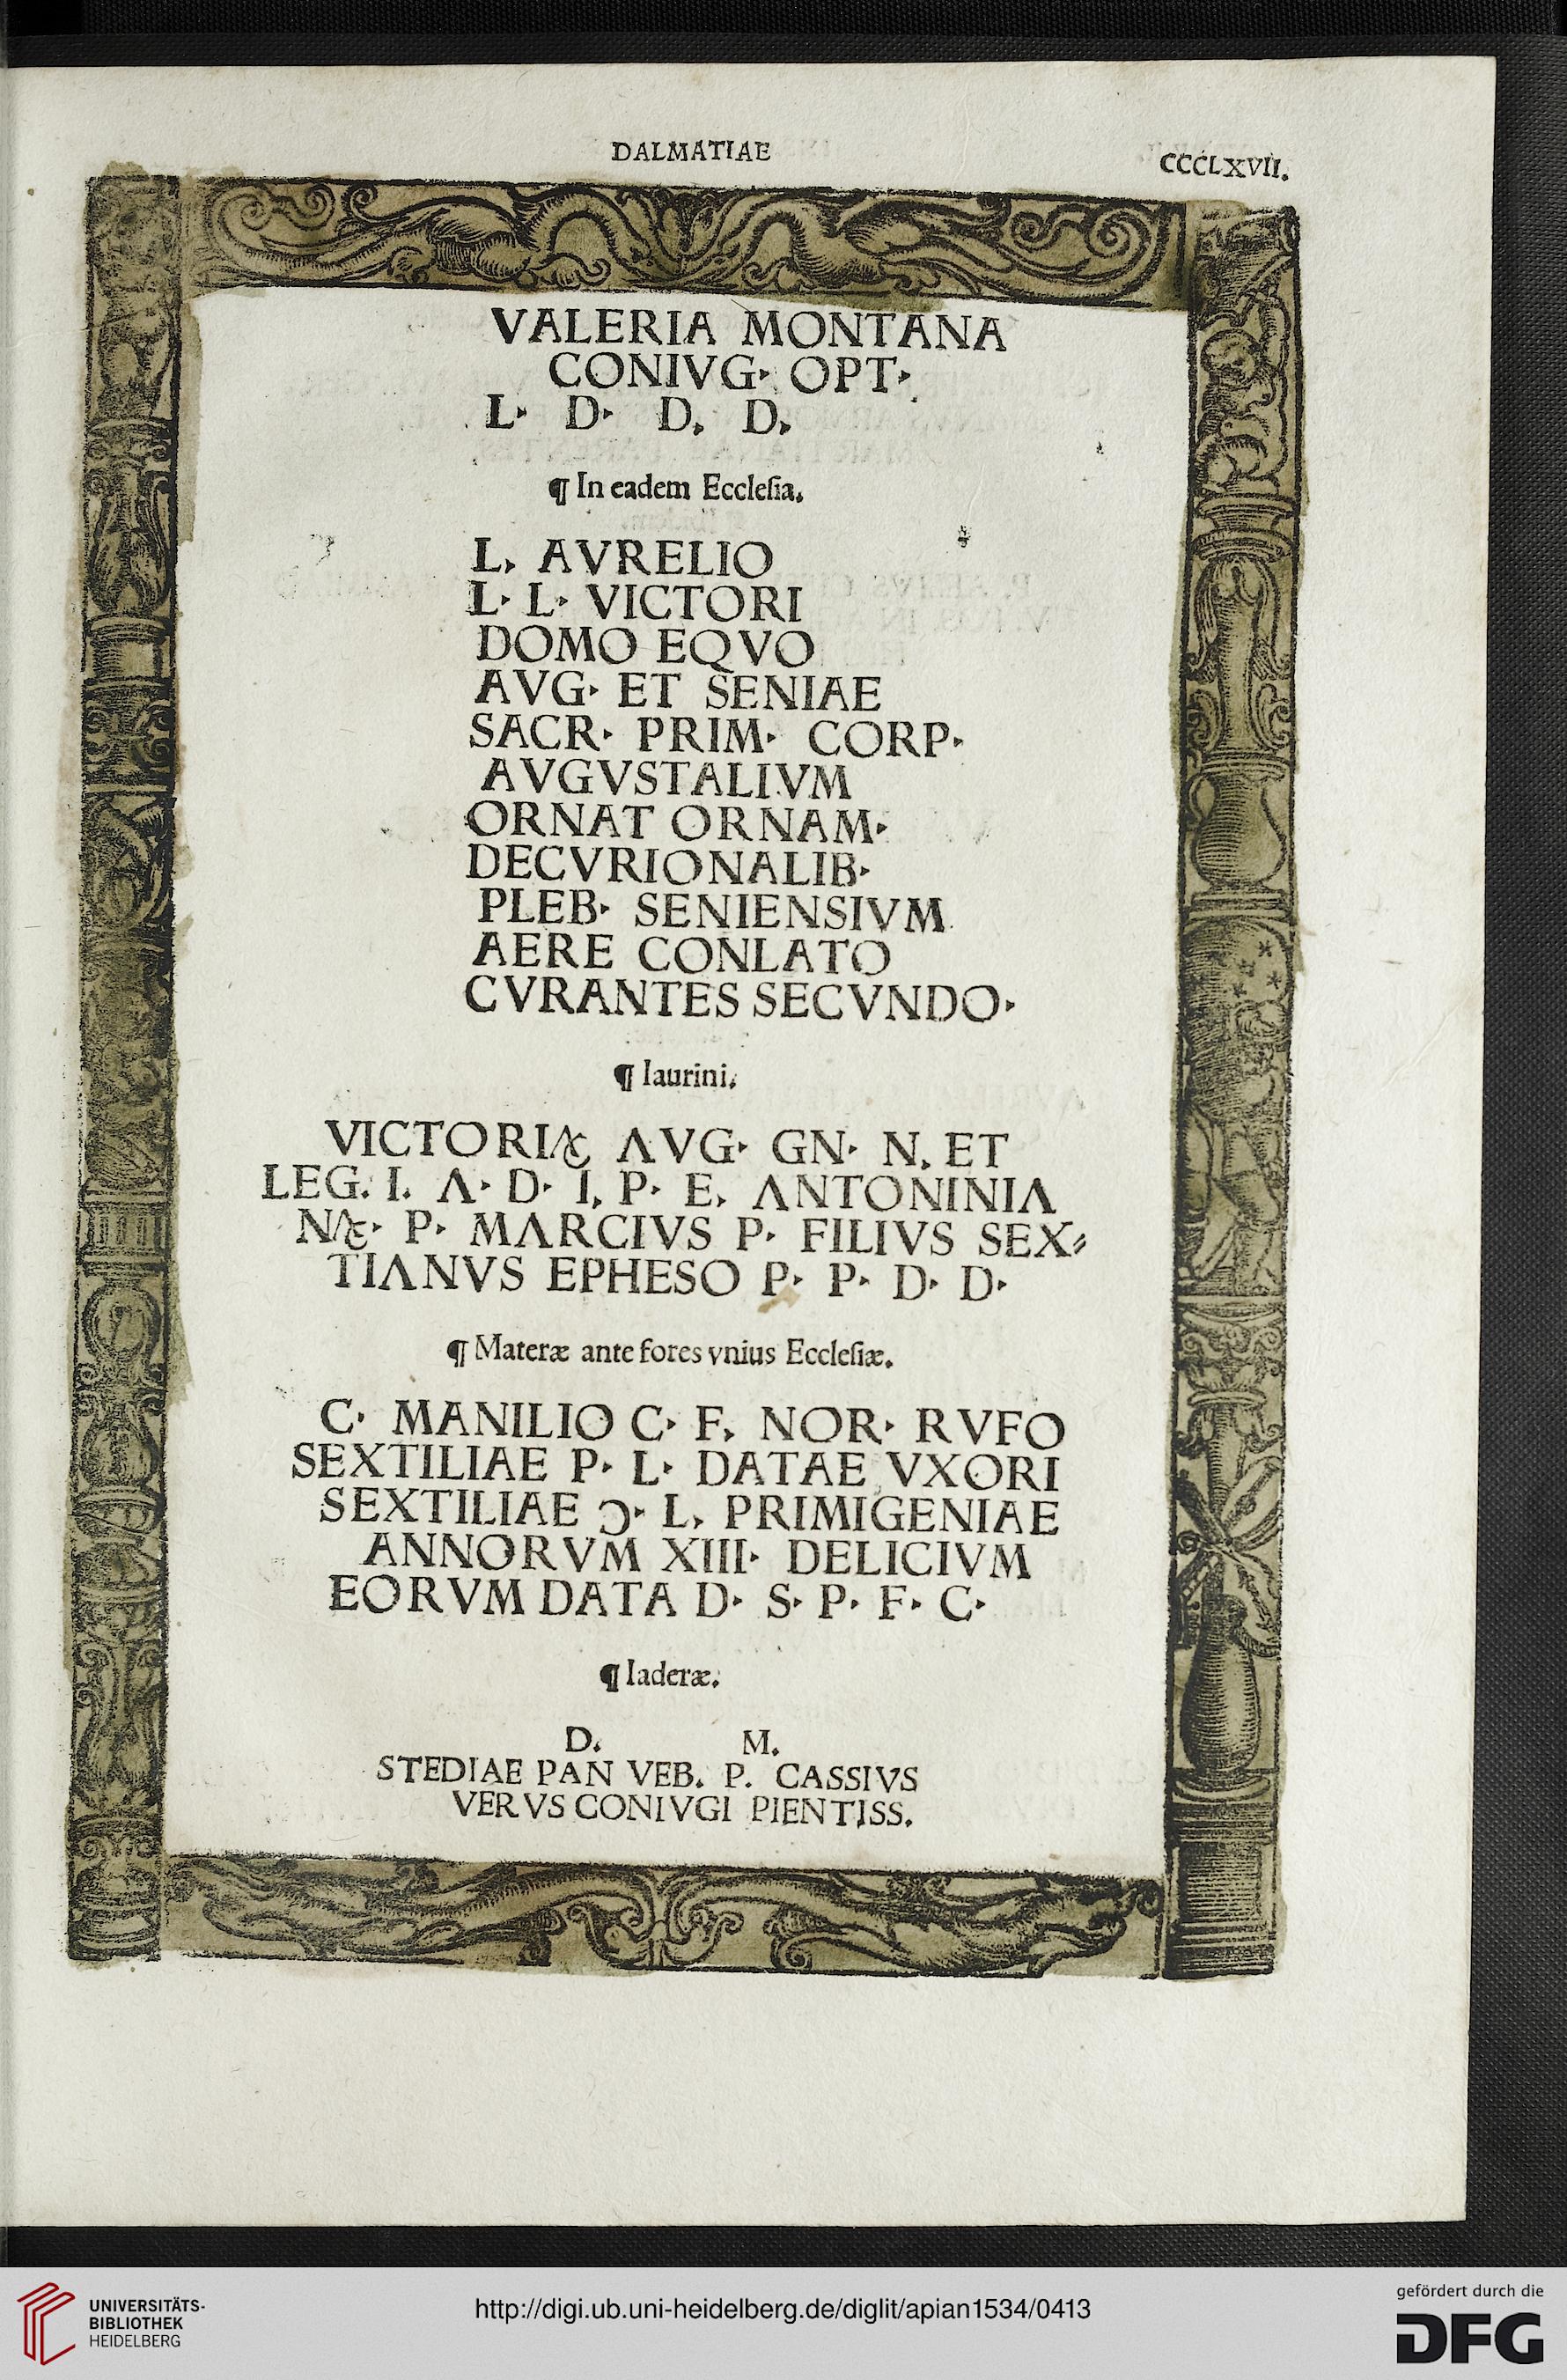 DALMATIAE
CCCLXVII.
VALERIA MONTANA
CONIVG· OPT·
L· D· D, D,
¶ In eadem Eccleſia.
L, AVRELIO
L· L· VICTORI
DOMO EQVO
AVG· ET SENIAE
SACR· PRIM· CORP·
AVGVSTALIVM
ORNAT ORNAM·
DECVRIONALIB·
PLEB· SENIENSIVM
AERE CONLATO
CVRANTES SECVNDO·
¶ Iaurini.
VICTORIÆ AVG· GN· N, ET
LEG. I. A· D· I, P· E, ANTONINIA
NÆ· P· MARCIVS P· FILIVS SEX⸗
TIANVS EPHESO P· P· D· D·
¶ Materæ ante fores vnius Eccleſiæ.
C· MANILIO C· F, NOR· RVFO
SEXTILIAE P· L· DATAE VXORI
SEXTILIAE Ɔ· L, PRIMIGENIAE
ANNORVM XIII· DELICIVM
EORVM DATA D· S· P· F· C·
¶ Iaderæ.
D. M.
STEDIAE PAN VEB. P. CASSIVS
VERVS CONIVGI PIENTISS.
UNIVERSITÄTS-
BIBLIOTHEK
HEIDELBERG
http://digi.ub.uni-heidelberg.de/diglit/apian1534/0413
gefördert durch die
DFG